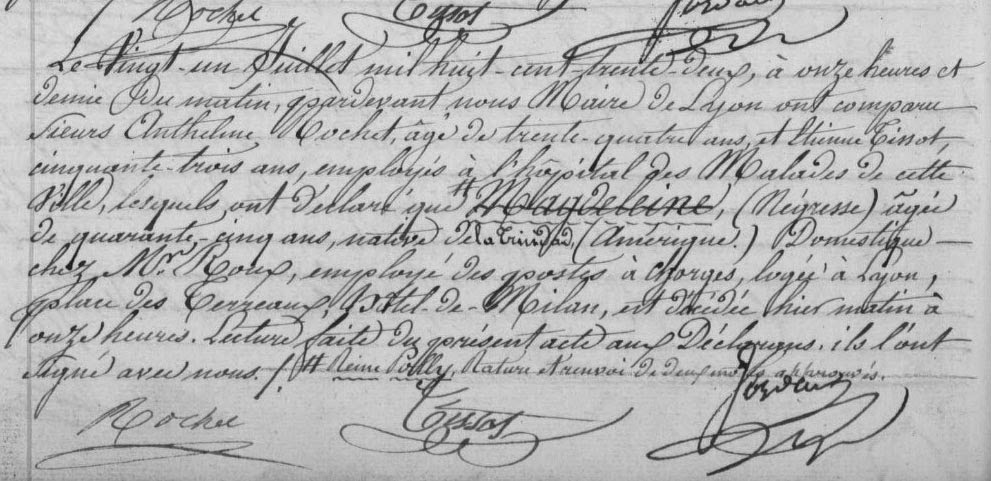 Rochet Tissot Jordan
Le Vingt-un Juillet mil huit-cent-trente-deux, à onze heures et
demie du matin, pardevant nous Maire de Lyon ont comparu
Sieurs Anthelme Rochet, âgé de trente-quatre ans, et Etienne Tissot,
cinquante-trois ans, employés à l'hôpital des Malades de cette
Ville, lesquels ont déclaré que # Magdeleine, (Négresse) âgée
de quarante-cinq ans, native de la Trinidad, (Amérique.) Domestique
chez Mr. Roux, employé des postes à Gorges, logée à Lyon,
place des Terreaux, hôtel-de-Milan, est décédée hier matin à
onze heures. Lecture faite du présent acte aux Déclarans. ils l'ont
signé avec nous. /. # Reine Polly, Rature et renvoi de deux mots approuvés.
Rochet Tissot Jordan